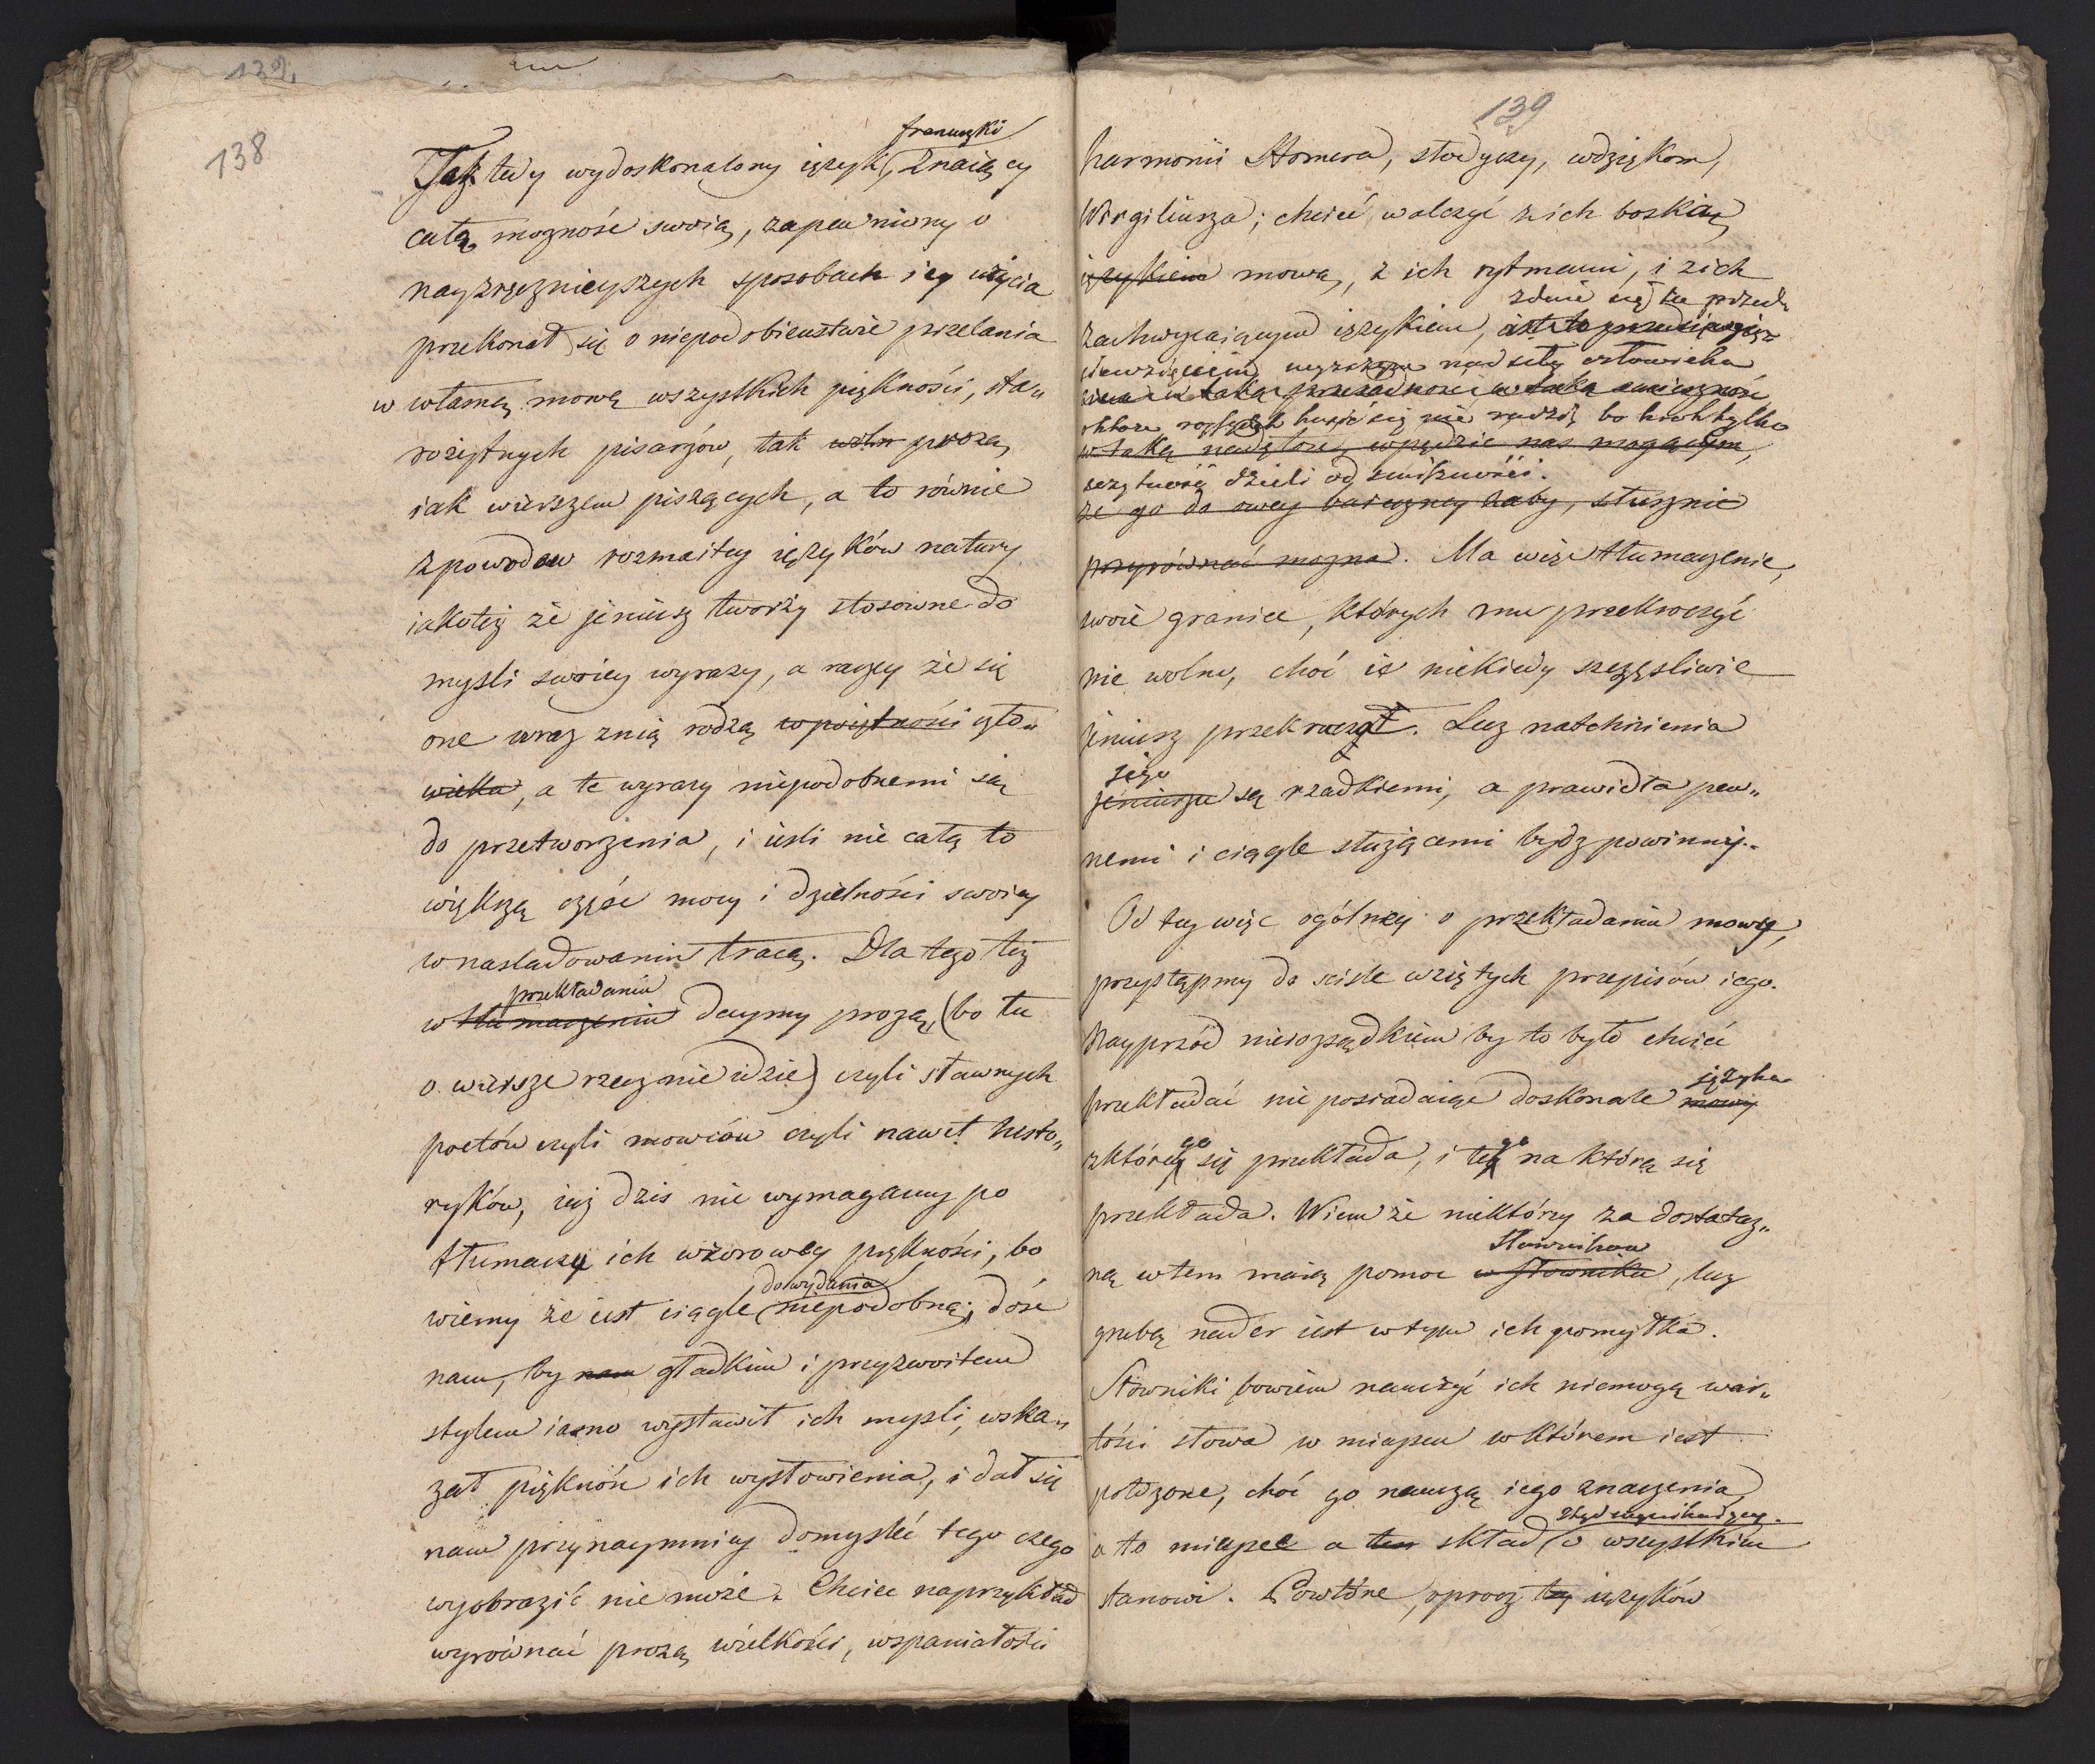 132.
138
francuzki
Tak tedy wydoskonalony ięzyk, Znaiący
całą mozność swoią, zapewniony o
nayzręcznieyszych sposobach iey użycia
przekonał się o niepodobieństwie przelania
w własną mowę wszystkich piękności, sta„
rożytnych pisarzów, tak prozą,
iak wierszem piszących, a to równie
z powodem rozmaitey ięzyków natury
iakoteż że jeniusz tworzy stosowne do
mysli swoiey wyrazy, a raczey że się
one wraz z nią rodzą w poiętności czło„
wieka, a te wyrazy niepodobnemi są
do przetworzenia, i ieśli nie całą to
większą część mocy i dzielności swoiey
w nasladowaniu tracą. Dla tego też
przekładaniu
w tłumaczeniu daymy prozą, (bo tu
o wiersze rzecz nie idzie) czyli sławnych
poetów czyli mowców czyli nawet histo„
ryków, iuż dzis nie wymagamy po
tłumaczy ich wzorowey piękności, bo
do wydania
wiemy że iest ciągle niepodobną; dość
nam, by nam gładkim i przyzwoitem
stylem iasno wystawił ich mysli, wska„
zał piękność ich wysłowienia, i dał się
nam przynaymniey domysleć tego czego
wyobrazić nie może. Chcieć naprzykład
wyrównać prozą wielkości, wspaniałości
139
harmonii Homera, słodyczy, wdziękom,
Wirgiliusza; chcieć walczyć z ich boską
ięzykiem mową, z ich rytmami, i z ich
zdaie się że przed
zachwycaiącym ięzykiem, iest to przedsięwzię„
sięwzięciem nad siły człowieka
w taką
bo krok tylko
w taką nadętość wpędzić nas mogącym,
dzieli od smiesznosci.
że go do owey baieczney żaby, słusznie
przyrównać mozna. Ma więc tłumaczenie,
swoie granice, których mu przekroczyć
nie wolno, choć ie niekiedy szczęsliwie
jeniusz przekroczył. Lecz natchnienia
jego
jeniuszu są rzadkiemi, a prawidła pew„
nemi i ciągle służącemi bydz powinny.
Od tey więc ogólney o przekładaniu mowy,
przystąpmy do sciśle wziętych przepisów iego.
Nayprzód nierozsądkiem by to było chcieć
ięzyka
przekładać nie posiadaiąc doskonale mowy
go go
z którey się przekłada, i tey na którą się
przekłada. Wiem że niektórzy za dostatecz„
Słowników
ną w tem maią pomoc w słowniku, lecz
grubą nader iest w tym ich pomyłka.
Słowniki bowiem nauczyć ich niemogą war„
tości słowa w mieyscu w którem iest
położone, choć go nauczą iego znaczenia,
ztąd wynikaiący
a to mieysce a ten skład o wszystkiem
stanowi. Powtóre, oprocz tey ięzyków